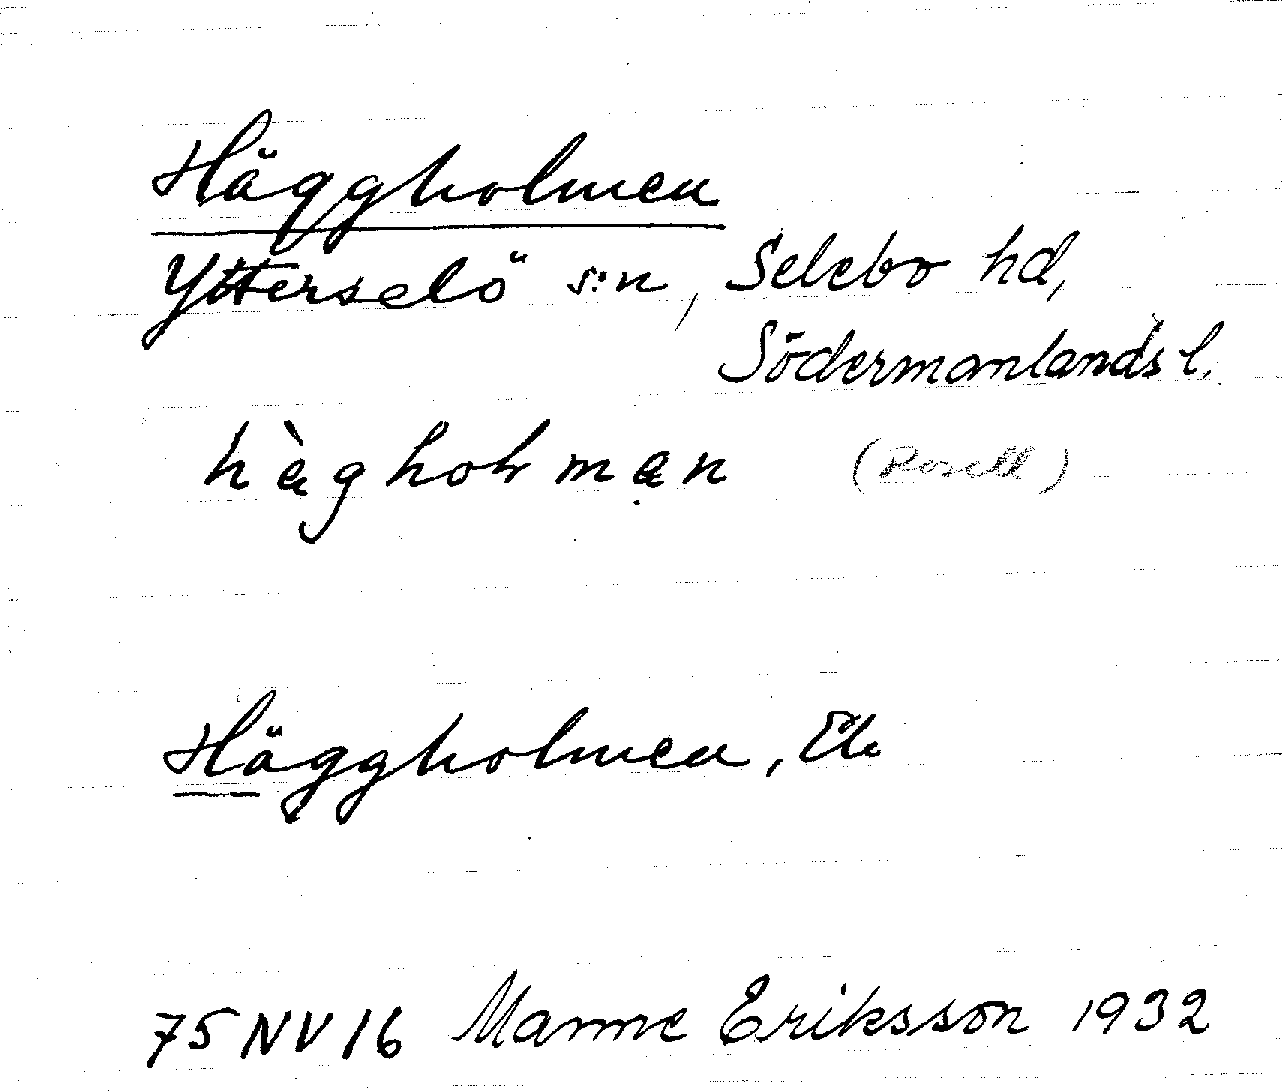 Häggholmen
Ytterselö s:n, Selebo hd,
Södermanlands l.
hàgholmạn (Rosell)
Häggholmen, Ek
75 NV 16 Manne Eriksson 1932